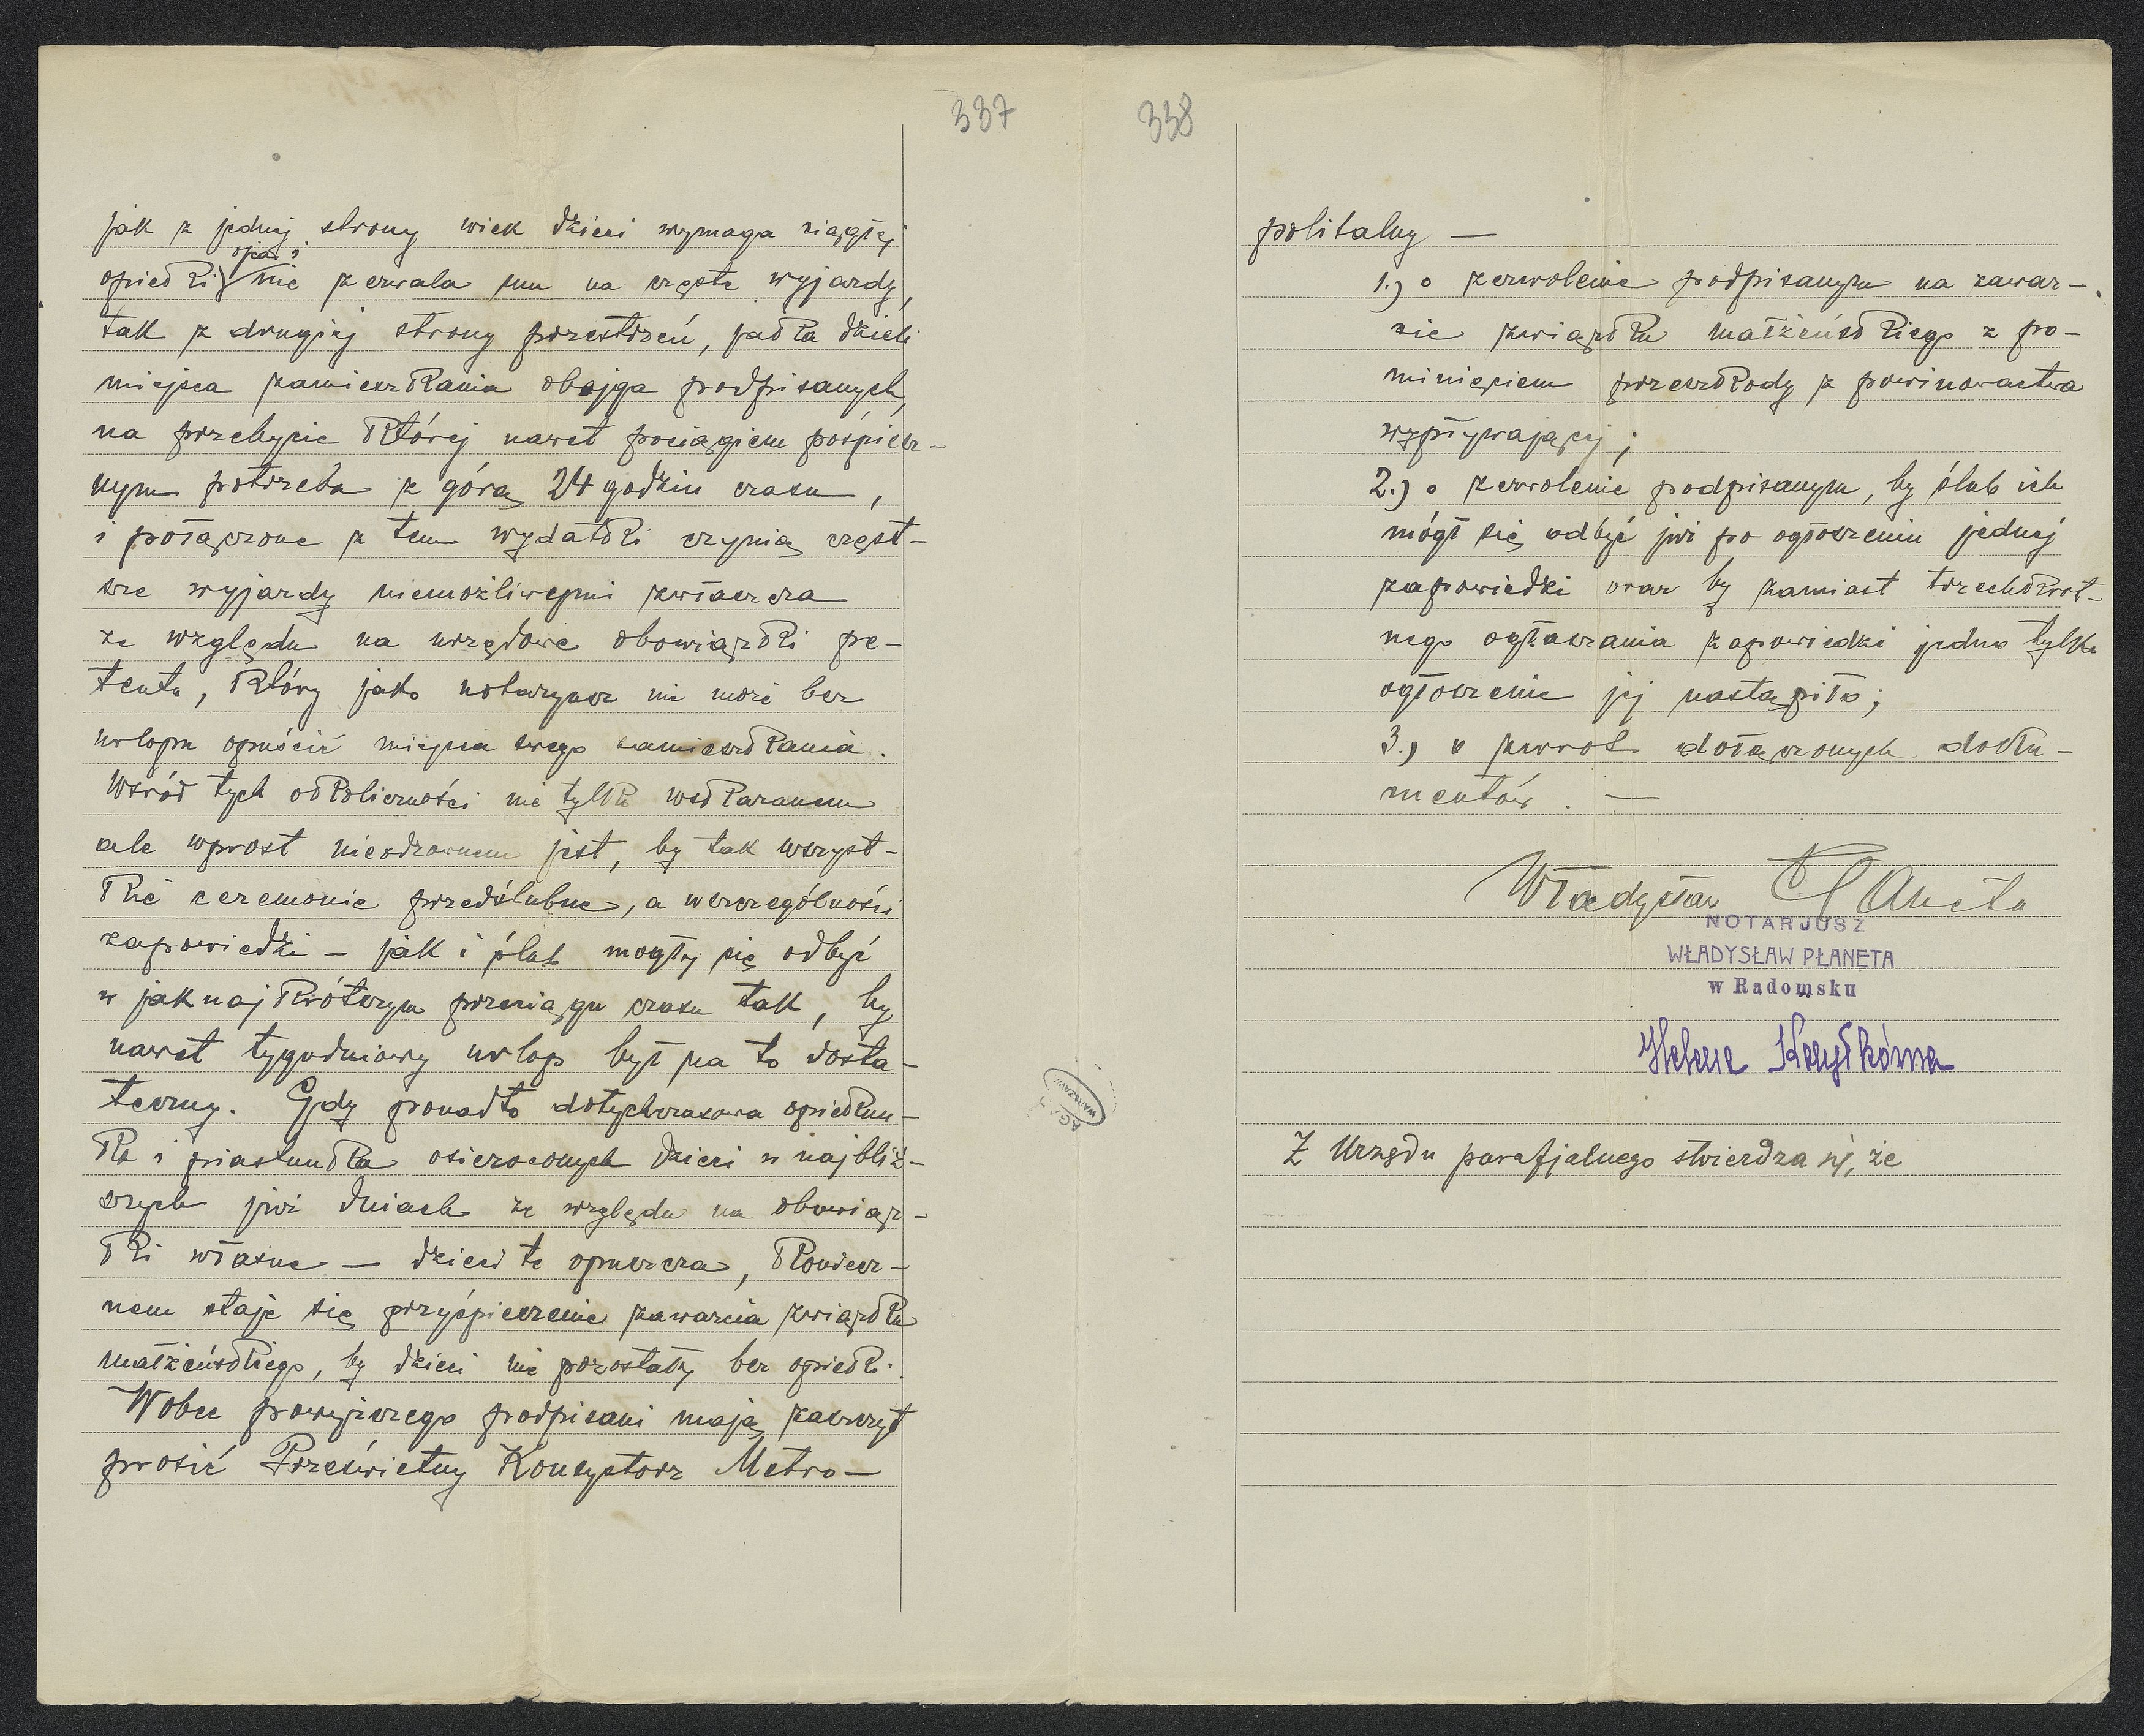 337
jak z jednej strony wiek dzieci wymaga ciągłej
ojca i
opieki nie zezwala mu na częste wyjazdy,
tak z drugiej strony przestrzeń, jaka dzieli
miejsca zamieszkania obojga podpisanych,
na przebycie której nawet pociągiem pośpiesz-
nym potrzeba z górą 24 godzin czasu,
i połączone z tem wydatki czynią częst-
sze wyjazdy niemożliwymi zwłaszcza
ze względu na urzędowe obowiązki pe-
tenta, który jako notaryusz nie może bez
urlopu opuścić miejsca swego zamieszkania.
Wśród tych okoliczności nie tylko wskazanem
ale wprost nieodzownem jest, by tak wszyst-
kie ceremonie przedślubne, a w szczególności
zapowiedzi – jak i ślub mogły się odbyć
w jak najkrótszym przeciągu czasu tak, by
nawet tygodniowy urlop był na to dosta-
teczny. Gdy ponadto dotychczasowa opiekun-
ka i piastunka osieroconych dzieci w najbliż-
szych już dniach ze względu na obowiąz-
ki własne – dzieci te opuszcza, koniecz-
nem staje się przyśpieszenie zawarcia związku
małżeńskiego, by dzieci nie pozostały bez opieki.
Wobec powyższego podpisani mają zaszczyt
prosić Prześwietny Konsystorz Metro-
AGAD
WARSZAWA
338
politalny —
1.) o zezwolenie podpisanym na zawar-
cie związku małżeńskiego z po-
minięciem przeszkody z powinowactwa
wypływającej;
2.) o zezwolenie podpisanym, by ślub ich
mógł się odbyć już po ogłoszeniu jednej
zapowiedzi oraz by zamiast trzechkrot-
nego ogłaszania zapowiedzi jedno tylko
ogłoszenie jej nastąpiło;
3.) o zwrot dołączonych doku-
mentów. —
Władysław Płaneta
NOTARJUSZ
WŁADYSŁAW PŁANETA
w Radomsku
Helena
Z Urzędu parafjalnego stwierdza się, że